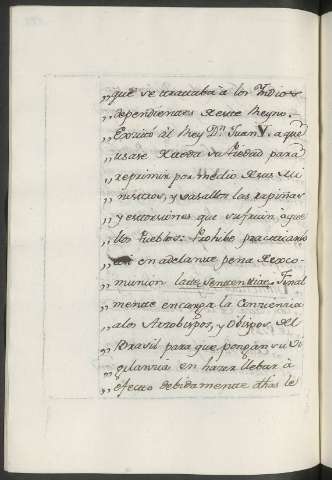 ,, que se trataba à los Yndios
,, dependientes de este Reyno.
,, Excitó al Rey Dⁿ Juan V. a que
,, usase de toda su Piedad para
,, reprimir por medio de sus Mi
,, nistros, y vasallos las rapiñas
,, y escorsiones que sufrian aque
,, llos Pueblos: Prohibe practicarlo
,, en adelante pena de exco-
,, munion latæ Sententiæ. Final
,, mente encarga la Conciencia
,, a los Arzobispos, y Obispos del
,, Brasil para que pongan su vi
,, gilancia en hacer llebar à
,, efecto debidamente dhas le